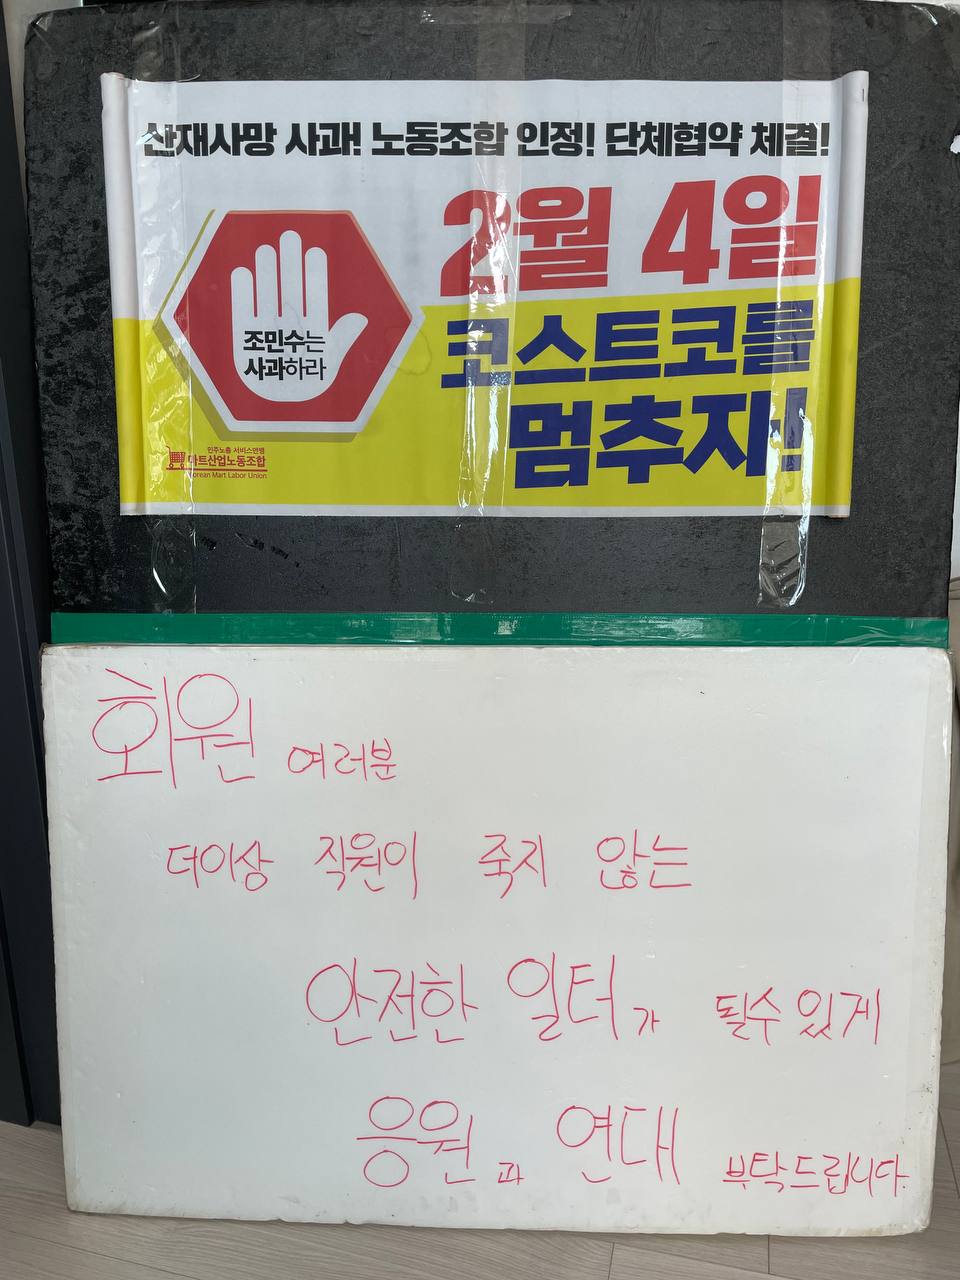 산재사망 사과! 노동조합 인정! 단체협약 체결!
2월 4일
코스트코를
멈추자!
조민수는
사과하라
민주노총 서비스연맹
마트산업노동조합
Korean Mart Labor Union
회원 여러분
더이상 직원이 죽지 않는
안전한 일터가 될수 있게
응원과 연대 부탁드립니다.